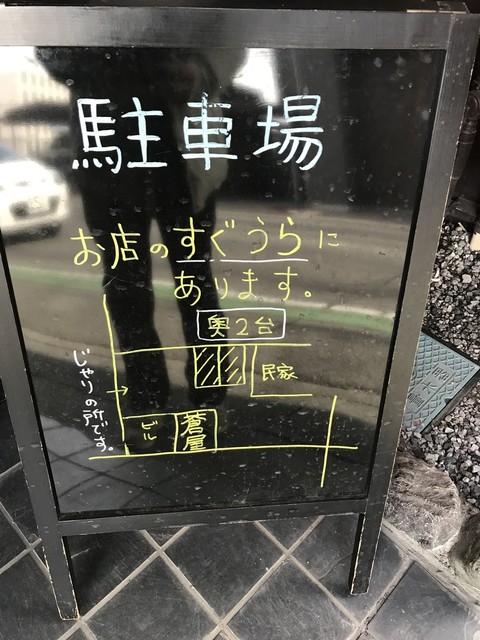 駐車場
お店のすぐうらに
あります。
奥2台
民家
じゃりの所です。
ビル
蒼屋